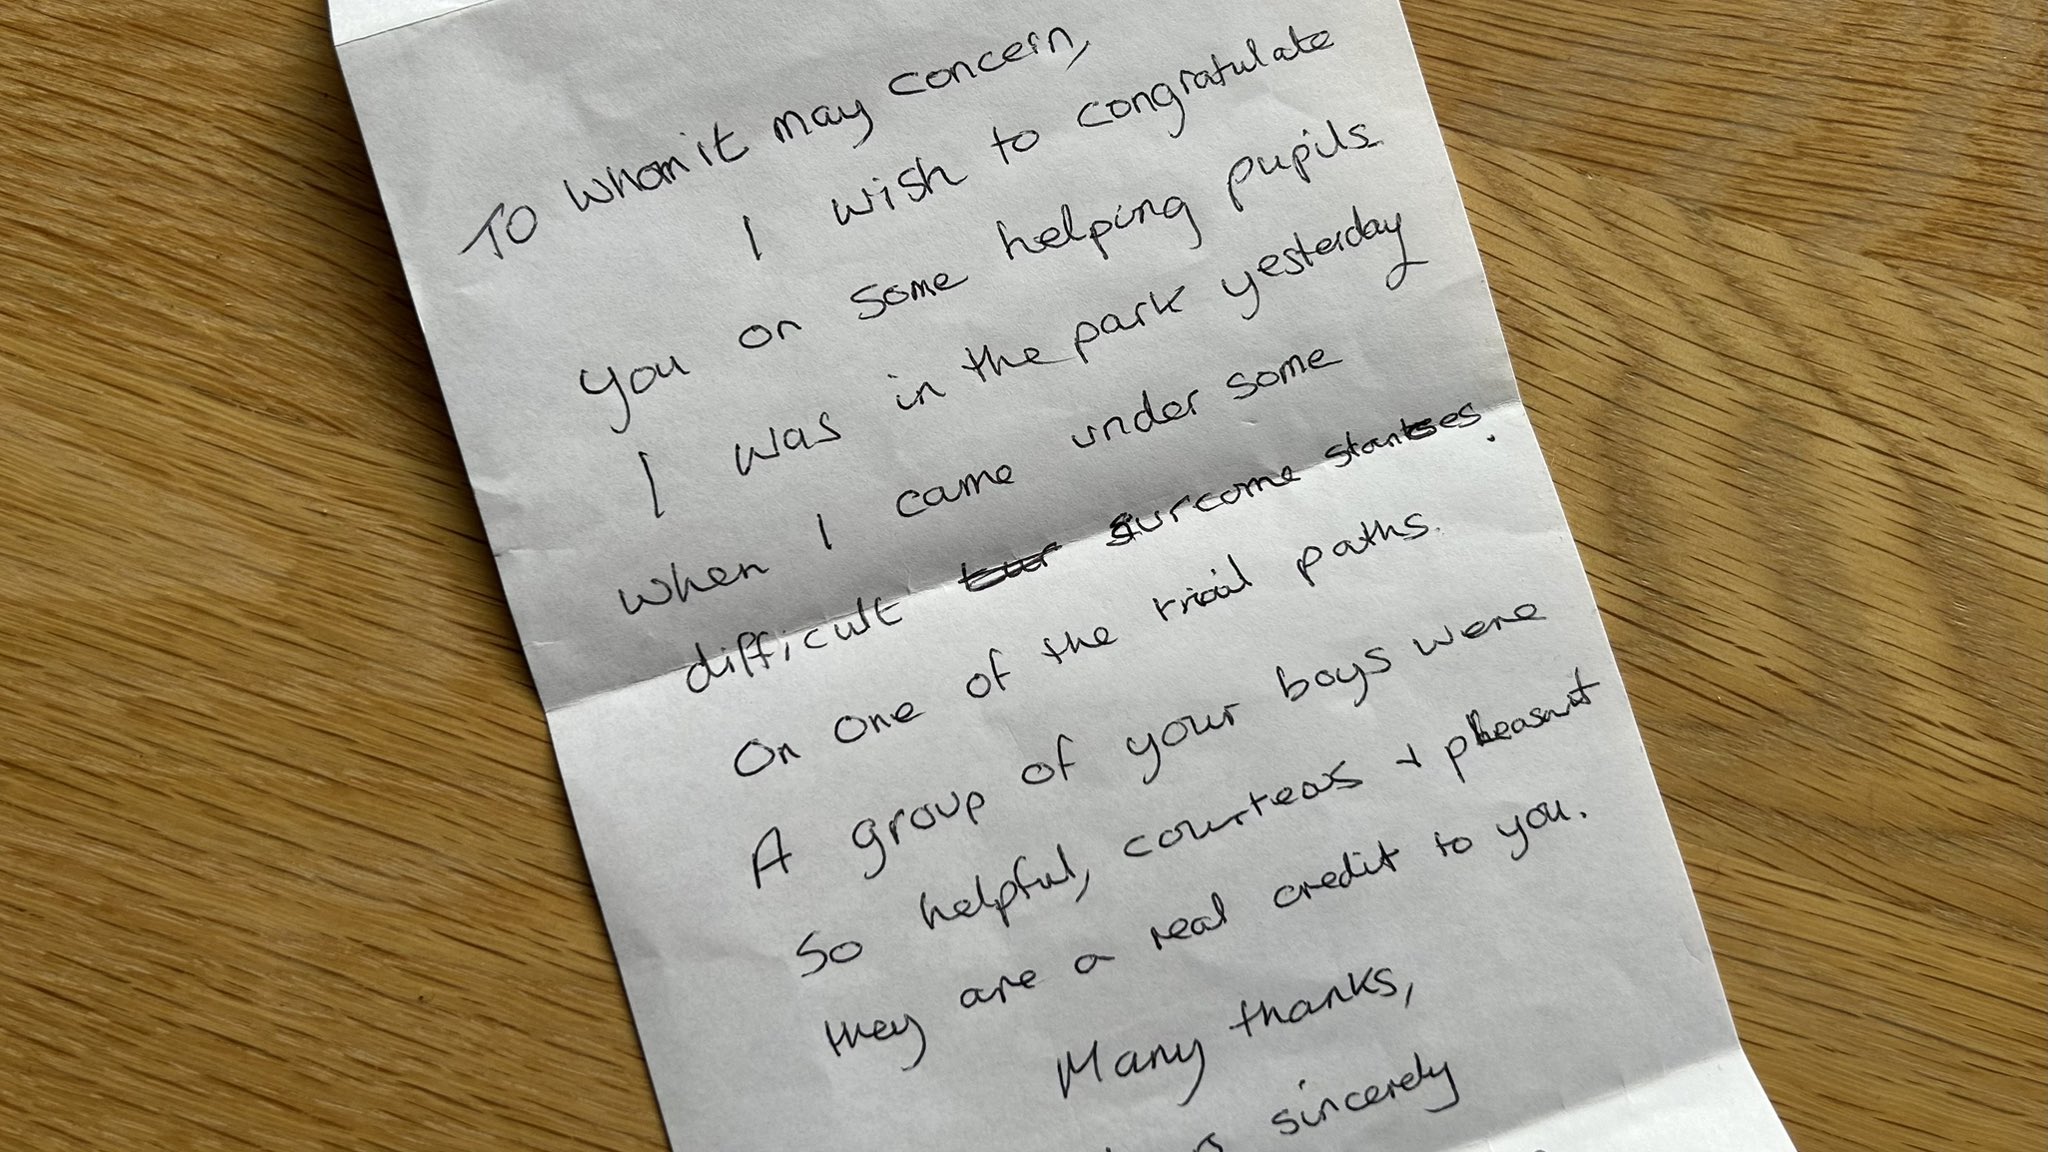 To whom it may concern,
I wish to congratulate
you on some helping pupils.
I was in the park yesterday
when I came under some
difficult surcome stantses.
On one of the trial paths.
A group of your boys were
so helpful, courteous + pleasant
they are a real credit to you.
Many thanks,
sincerely